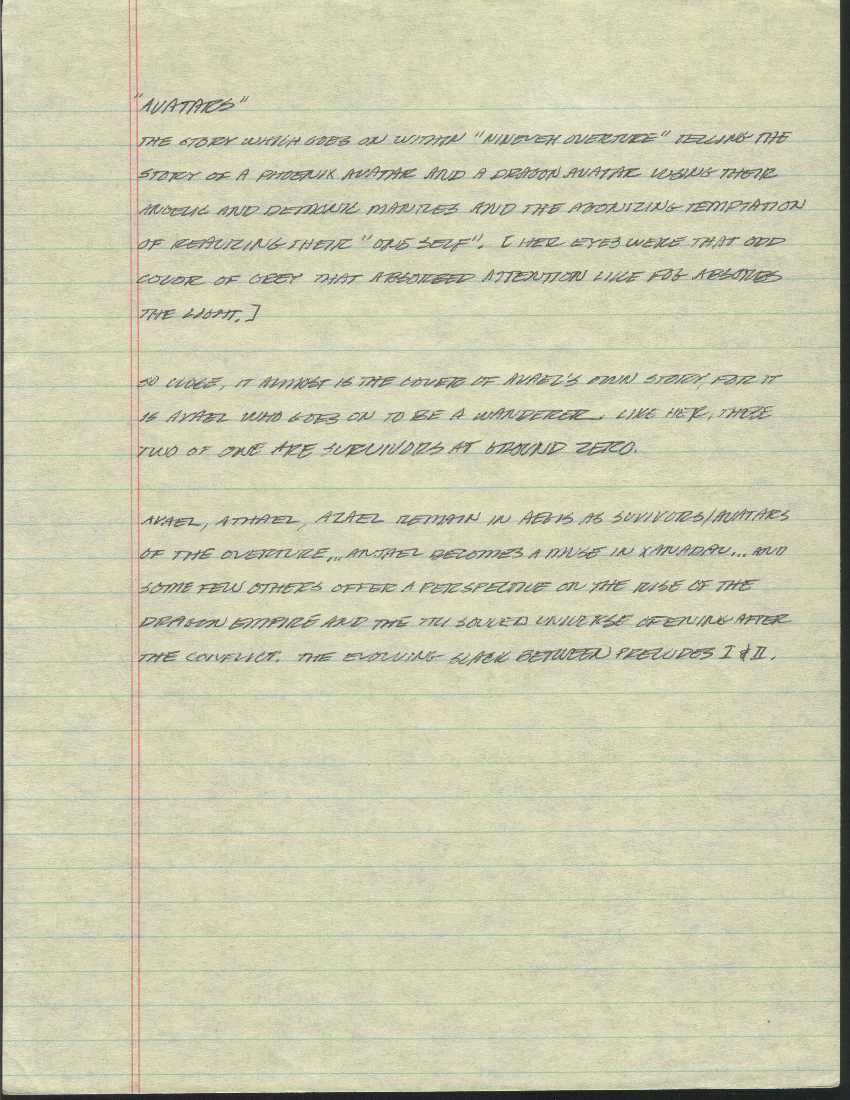 "AVATARS"
THE STORY WHICH GOES ON WITHIN "NINEVEH OVERTURE" TELLING THE
STORY OF A PHOENIX AVATAR AND A DRAGON AVATAR LOSING THEIR
ANGELIC AND DEMONIC MANTLES AND THE AGONIZING TEMPTATION
OF REALIZING THEIR "ONE SELF". [ HER EYES WERE THAT ODD
COLOR OF GREY THAT ABSORBED ATTENTION LIKE FOG ABSORBS
THE LIGHT.]
SO CLOSE, IT ALMOST IS THE COVER OF AVAEL'S OWN STORY, FOR IT
IS AVAEL WHO GOES ON TO BE A WANDERER. LIKE HER, THESE
TWO OF ONE ARE SURVIVORS AT GROUND ZERO.
AVAEL, ATHAEL, AZAEL REMAIN IN AEGIS AS SUVIVORS/AVATARS
OF THE OVERTURE... BECOMES A MUSE IN XANADAU... AND
SOME FEW OTHERS OFFER A PERSPECTIVE ON THE RISE OF THE
DRAGON EMPIRE AND THE SOULED UNIVERSE OPENING AFTER
THE CONFLICT. THE EVOLVING SLACK BETWEEN PRELUDES I & II.